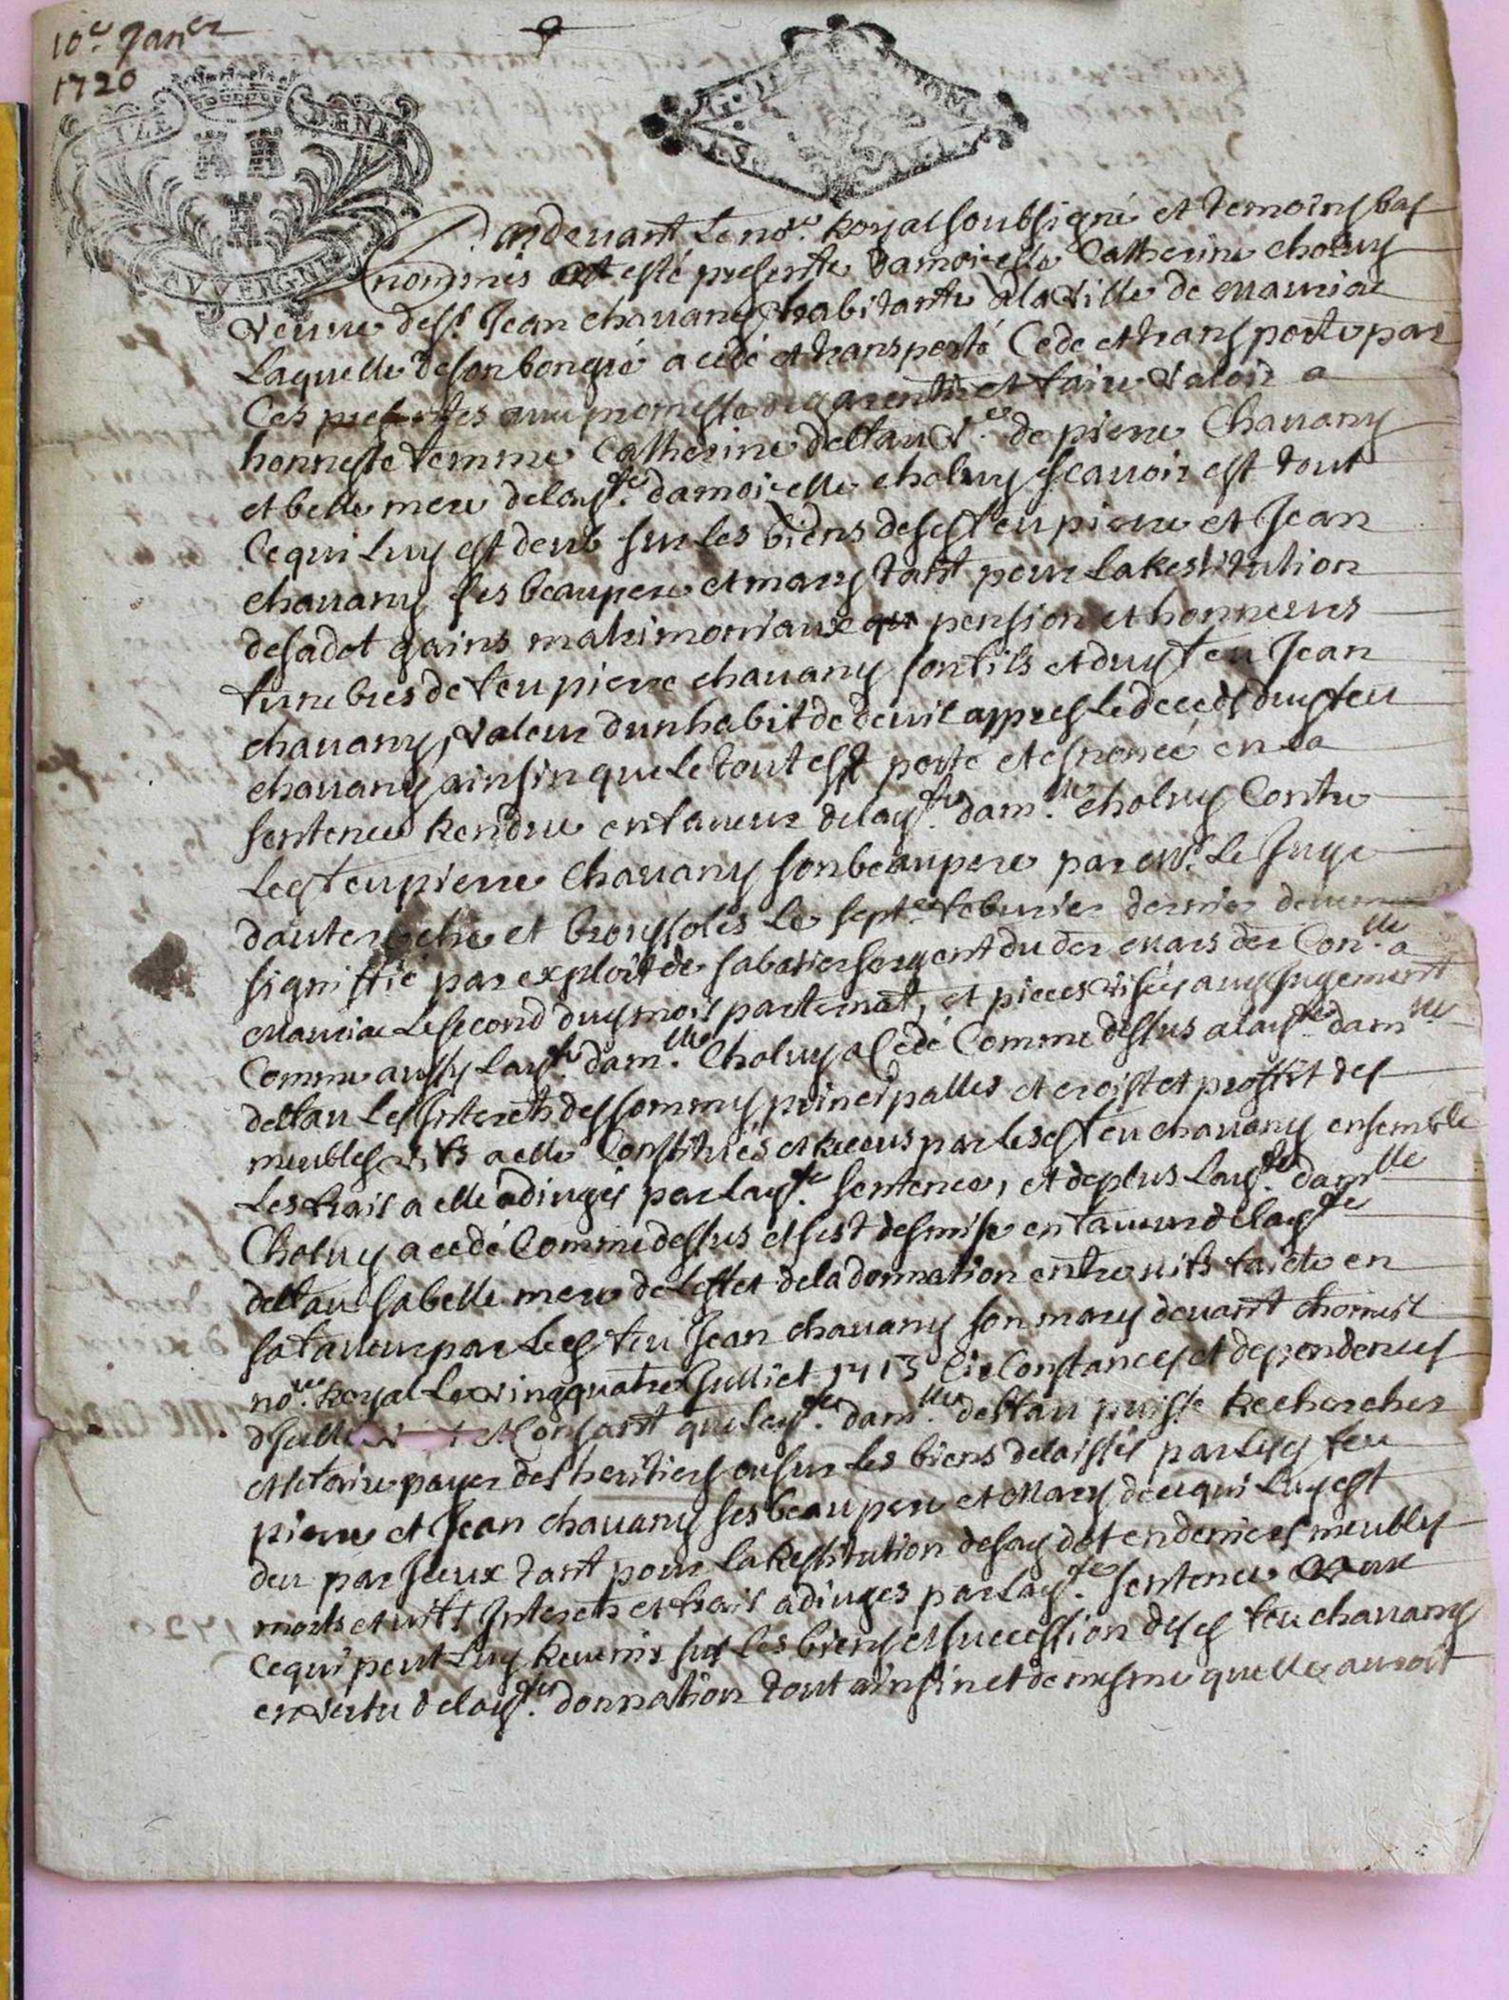 10e Janer
1720
SEIZE DENI
AUVERGNE
G. DE
Pardevant le nore. Royal soubsigné et temoins bas
nommés est esté presente damoiselle Catherine cholvy
veuve de sr. Jean chavany habitante de la ville de mauriac
Laquelle de son bongré a cédé et transporté Cede et transporte par
Ces presentes avec promesse de garentir et faire valoir a
honneste femme Catherine delzau ve. de pierre Chavany
et belle mere de lade. damoiselle cholvy scavoir est tout
Ce qui Luy est deub sur les biens desd feu pierre et Jean
chavany ses beaupere et mary tant pour La Restitution
de sa dot gains matrimoniaux pension et honneurs
funebres de feu pierre chavany son fils et dud feu Jean
chavany, valeur dun habit de deuil appres le deceds dud feu
chavany ainsin que le tout est porté et enoncé en la
sentence Rendue en faveur de lade. damlle. cholvy Contre
Led feu pierre Chavany son beaupere par mr. Le Juge
dauteroche et broussoles Le septe. febvrier dernier
signiffié par exploit de sabatier sergent du der mars der Conlle. a
Mauriac Le second dud mois par ternat, et pieces visées aud Jugement
Comme aussy Lade. damlle. Cholvy a Cedé Comme dessus a lade. damlle
delzau Les Interets des sommes principalles et croist et proffit des
meubles vifs a elle Constitués et Receus par lesd feu chavany ensemble
Les frais a elle adiugés par lade. sentence, et de plus Lade. damlle
Cholvy a cedé Comme dessus et sest desmise en faveur de lade
delzau sa belle mere de Leffet de la donnation entre vifs faicte en
sa faveur par Led feu Jean chavany son mary devant chomeil
nore. Royal Le vingquatre Julliet 1713 Circonstances et dependences
dicelle Consant que lade. damlle. delzau puisse Rechercher
et se faire payer des heritiers ou sur Les biens delaissés par Lesd feu
pierre et Jean chavany ses beaupere et Mary de ce qui Luy est
deu par Iceux tant pour la Restitution de sad dot en deniers meubles
morts et vifs Interets et frais adiuges par lade. sentence
Ce qui peut Luy Revenir sur les biens et succession dud feu chavany
en vertu de lade. donnation tout ainsin et de mesme quelle auroit